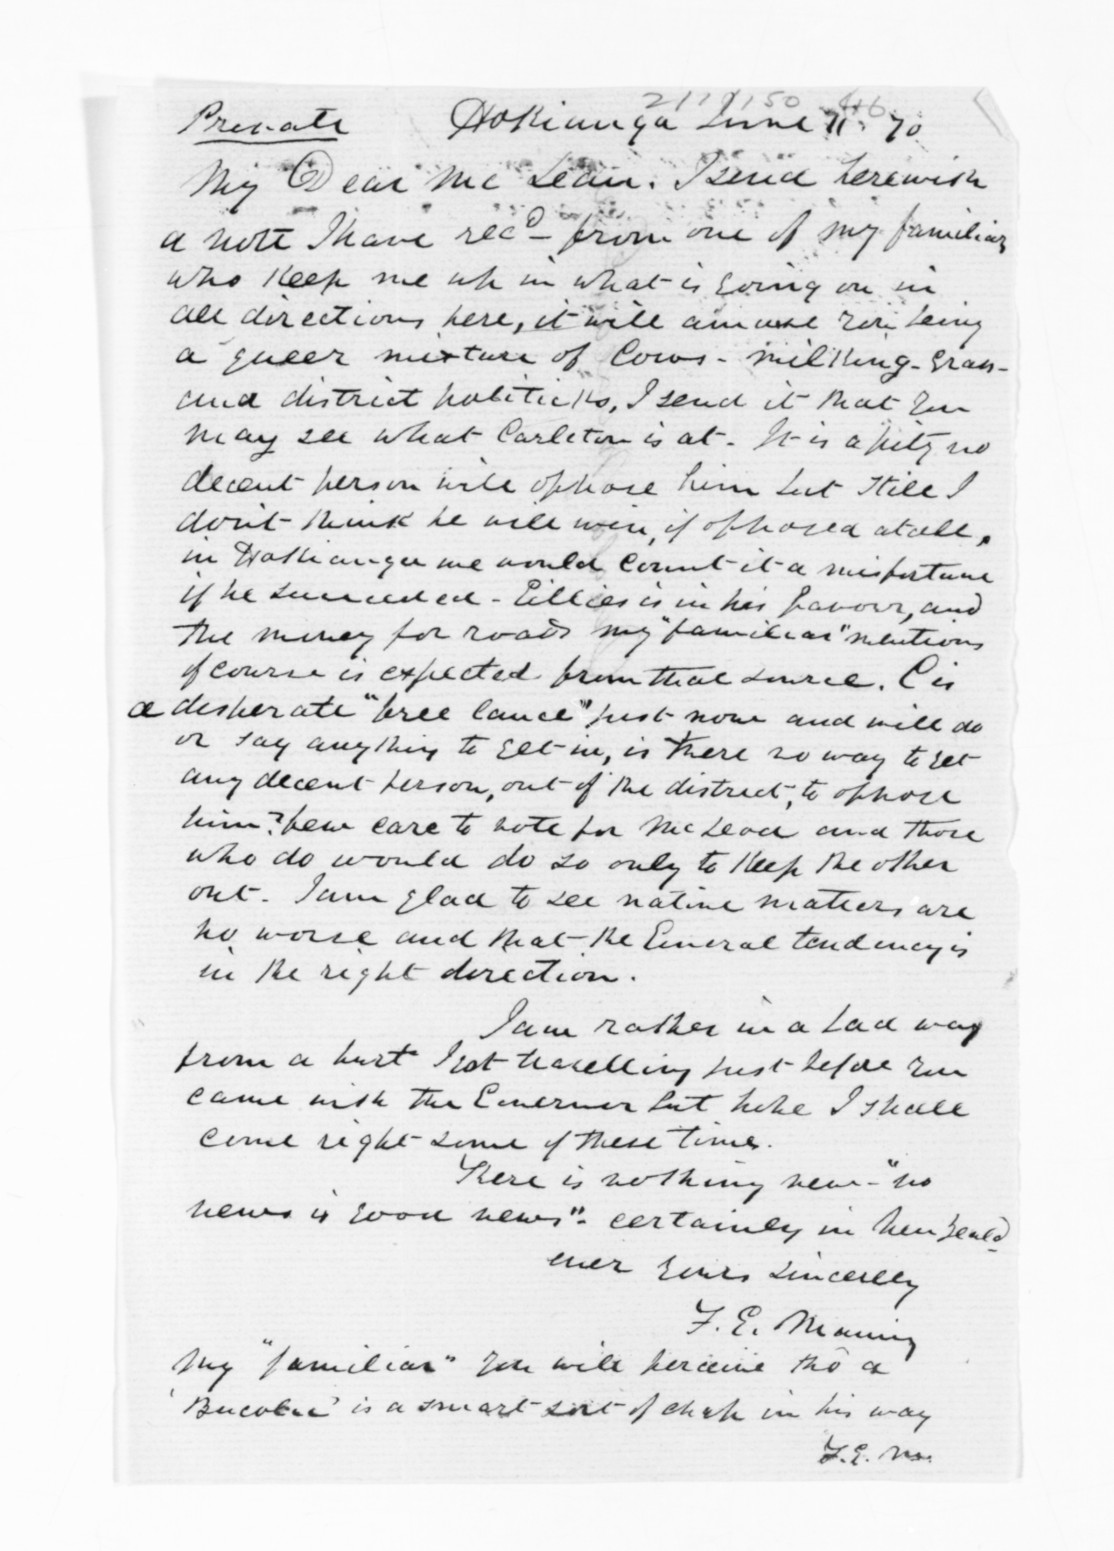 Private Hokianga June 11. 70
My Dear McLean. I send herewith
a note I have recd- from one of my familiars
who keep me up in what is going on in
all directions here, it will amuse you being
a queer mixture of Cows - milking - grass -
and district politicks, I send it that you
may see what Carleton is at. It is a pity no
decent person will oppose him but still I
don't think he will win, if opposed atall,
in Hokianga we would count it a misfortune
if he succeeded - Gillies is in his favour, and
the money for roads my "familiar" mentions
of course is expected from that source. C is
a desperate "free lance" just now and will do
or say anything to get in, is there no way to get
any decent person, out of the district, to oppose
him? few care to vote for McLeod and those
who do would do so only to keep the other
out. I am glad to see native matters are
no worse and that the General tendency is
in the right direction.
I am rather in a bad way
from a hurt I got travelling just before you
came with the Governor but hope I shall
come right some of these times.
There is nothing new - "no
news is good news" - certainly in New Zealд
ever yours sincerely
F. E. Maning
My "familiar" you will perceive tho a
'Bucolic' is a smart sort of chap in his way
F. E. M.